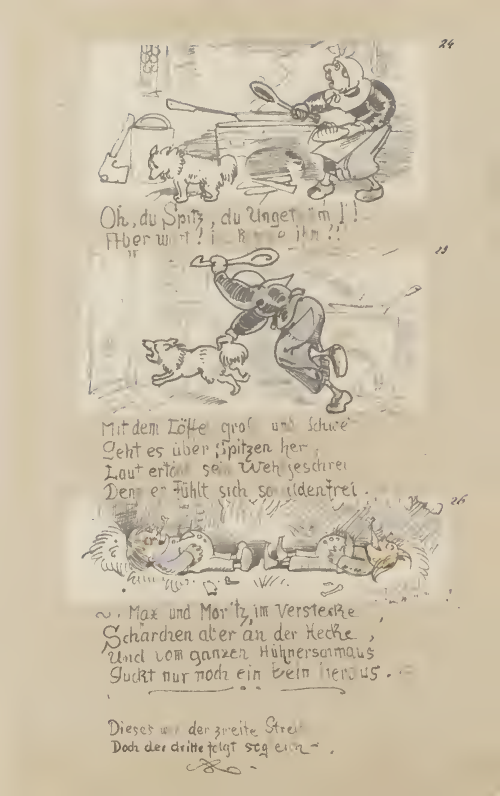 24
Oh, du Spitz, du Ungetüm!!
Aber wart! ich ihm!!
25
Mit dem Löffel groß und schwer
Geht es über Spitzen her;
Laut ertönt sein Wehgeschrei
Denn er fühlt sich schuldenfrei.
26
Max und Moritz, im Verstecke
Schnarchen aber an der Hecke,
Und vom ganzen Hühnerschmaus
Guckt nur noch ein Bein heraus.
Dieses war der zweite Streich
Doch der dritte folgt sogleich.